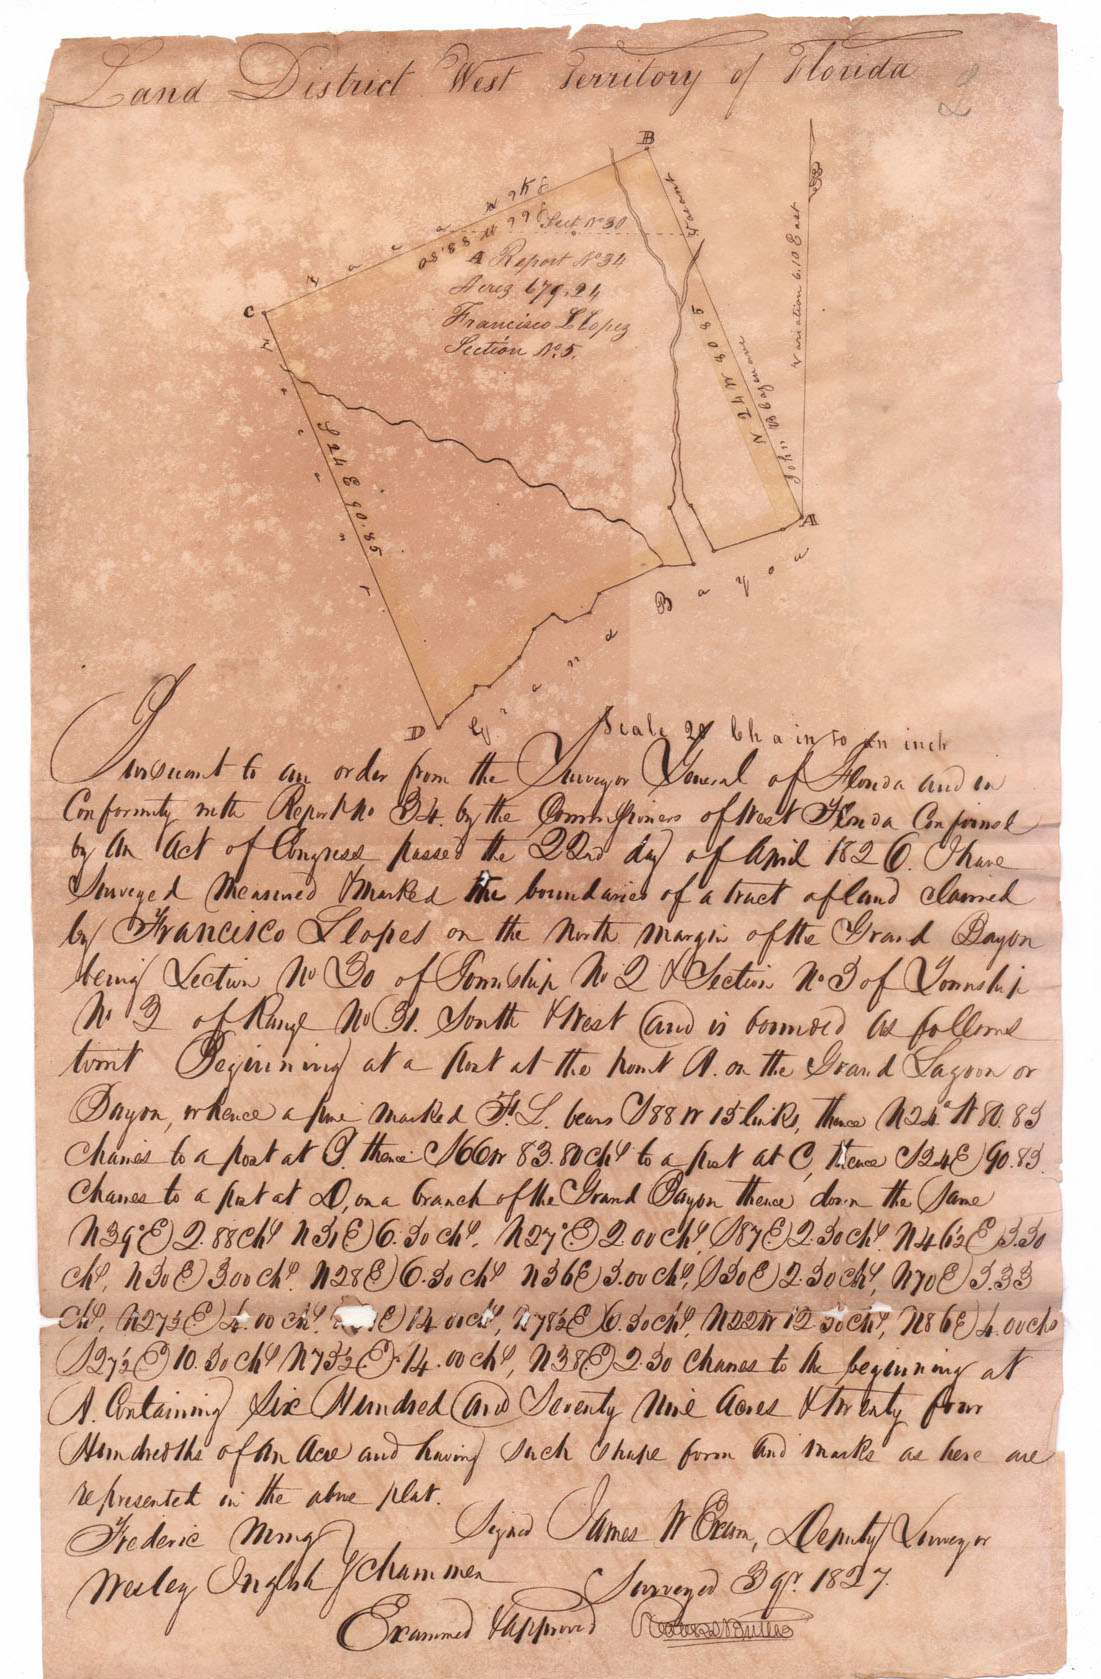 Land District West Territory of Florida
B
Vacant
Vacant
S 66 W 83.80
Sect. No 30
A Report No 34
Acres 679.24
Francisco Llopez
Section No. 5.
C
Vacant
S 24 E 90.85
N 24 W 80 85
Variation 6.10 East
A
Grand Bayou
D
Scale 20 Chains to an inch
Pursuant to an order from the Surveyor General of Florida and in
Conformity with Report No 34. by the Commissioners of West Florida Confirmed
by An Act of Congress passed the 22nd day of April 1826. I have
Surveyed Measured & marked the boundaries of a tract of land claimed
by Francisco Llopes on the North margin of the Grand Bayou
being Section No 30 of Township No 2 & Section No 5 of Township
No 3 of Range No 31. South & West and is bounded as follows
towit Beginning at a post at the point A. on the Grand Lagoon or
Bayou, whence a pine marked F. L. bears S88 W 15 links, thence N24° W 80.85
chaines to a post at B. thence S66W 83.80 chs to a post at C, thence S24E 90.85
chanes to a post at D, on a branch of the Grand Bayou thence down the Same
N39°E 2.88 chs N31E 6.50 chs. N27°E 2.00 chs, S87E 2.50 chs. N46½E 3.50
chs, N50E 3.00 chs. N28E 6.50 chs N36E 3.00 chs, S50E 2.50 chs, N70E 3.33
chs, N27½E 4.00 chs. E 14.00 chs, N78½E 6.50 chs, N22W 12.50 chs, N86E 4.00 chs
S27½E 10.50 chs N73½E 14.00 chs, N58E 2.50 chanes to the beginning at
A. Containing Six Hundred and Seventy Nine Acres & twenty four
Hundredths of An Acre and having such shape form and marks as here are
represented in the above plat.
Signed James W Exum, Deputy Surveyor
Frederic Ming
Wesley English } chanmen
Surveyed 3 qr. 1827.
Examined & approved Robert Butler